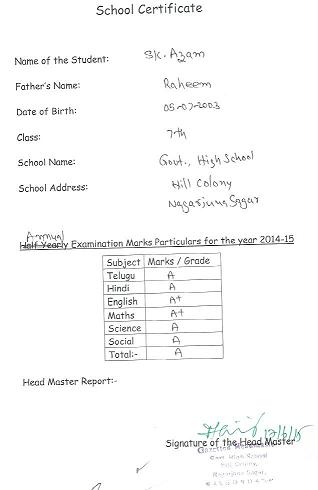 School Certificate
Name of the Student: SK. Azam
Father's Name: Raheem
Date of Birth: 05-07-2003
Class: 7th
School Name: Govt., High School
School Address: Hill Colony
Nagarjuna Sagar
Annual
Half Yearly Examination Marks Particulars for the year 2014-15
Subject Marks / Grade
Telugu A
Hindi A
English A+
Maths A+
Science A
Social A
Total:- A
Head Master Report:-
17/6/15
Signature of the Head Master
Gazetted
Govt. High School
Hill Colony,
Nagarjuna Sagar,